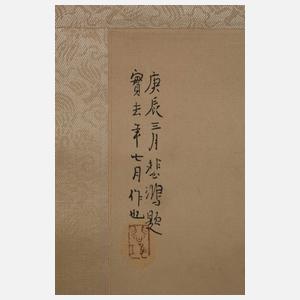 庚辰三月悲鴻題
實去年七月作也